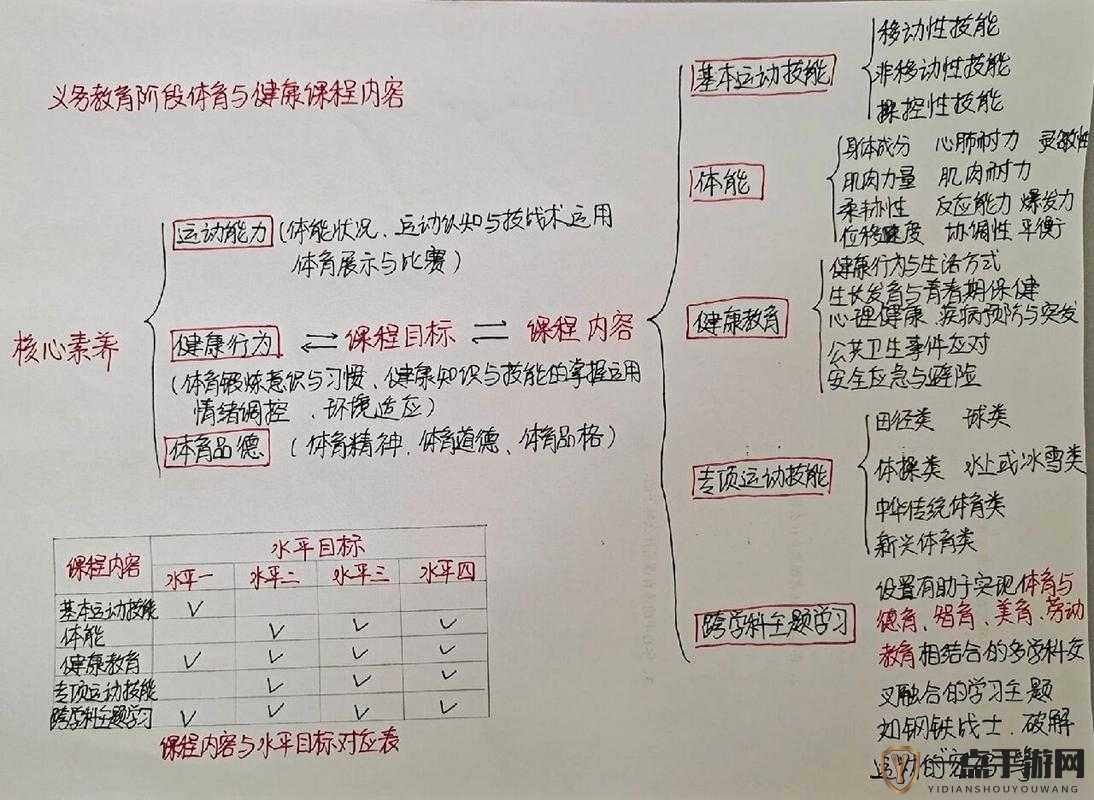 义务教育阶段体育与健康课程内容
核心素养
运动能力(体能状况、运动认知与技战术运用
体育展示与比赛)
健康行为 ⇌ 课程目标 ⇌ 课程内容
(体育锻炼意识与习惯、健康知识与技能的掌握运用
情绪调控、环境适应)
体育品德 (体育精神、体育道德、体育品格)
基本运动技能
移动性技能
非移动性技能
操控性技能
体能
身体成分 心肺耐力 灵敏性
肌肉力量 肌肉耐力
柔韧性 反应能力 爆发力
位移速度 协调性 平衡
健康教育
健康行为与生活方式
生长发育与青春期保健
心理健康、疾病预防与突发
公共卫生事件应对
安全应急与避险
专项运动技能
田径类 球类
体操类 水上或冰雪类
中华传统体育类
新兴体育类
跨学科主题学习
设置有助于实现体育与
德育、智育、美育、劳动
教育相结合的多学科交
叉融合的学习主题
如钢铁战士、破解
运动的
课程内容 水平目标
水平一 水平二 水平三 水平四
基本运动技能 ✓
体能 ✓ ✓ ✓
健康教育 ✓ ✓ ✓ ✓
专项运动技能 ✓ ✓ ✓
跨学科主题学习 ✓ ✓ ✓ ✓
课程内容与水平目标对应表
点手游网
YIDIANSHOUYOUWANG